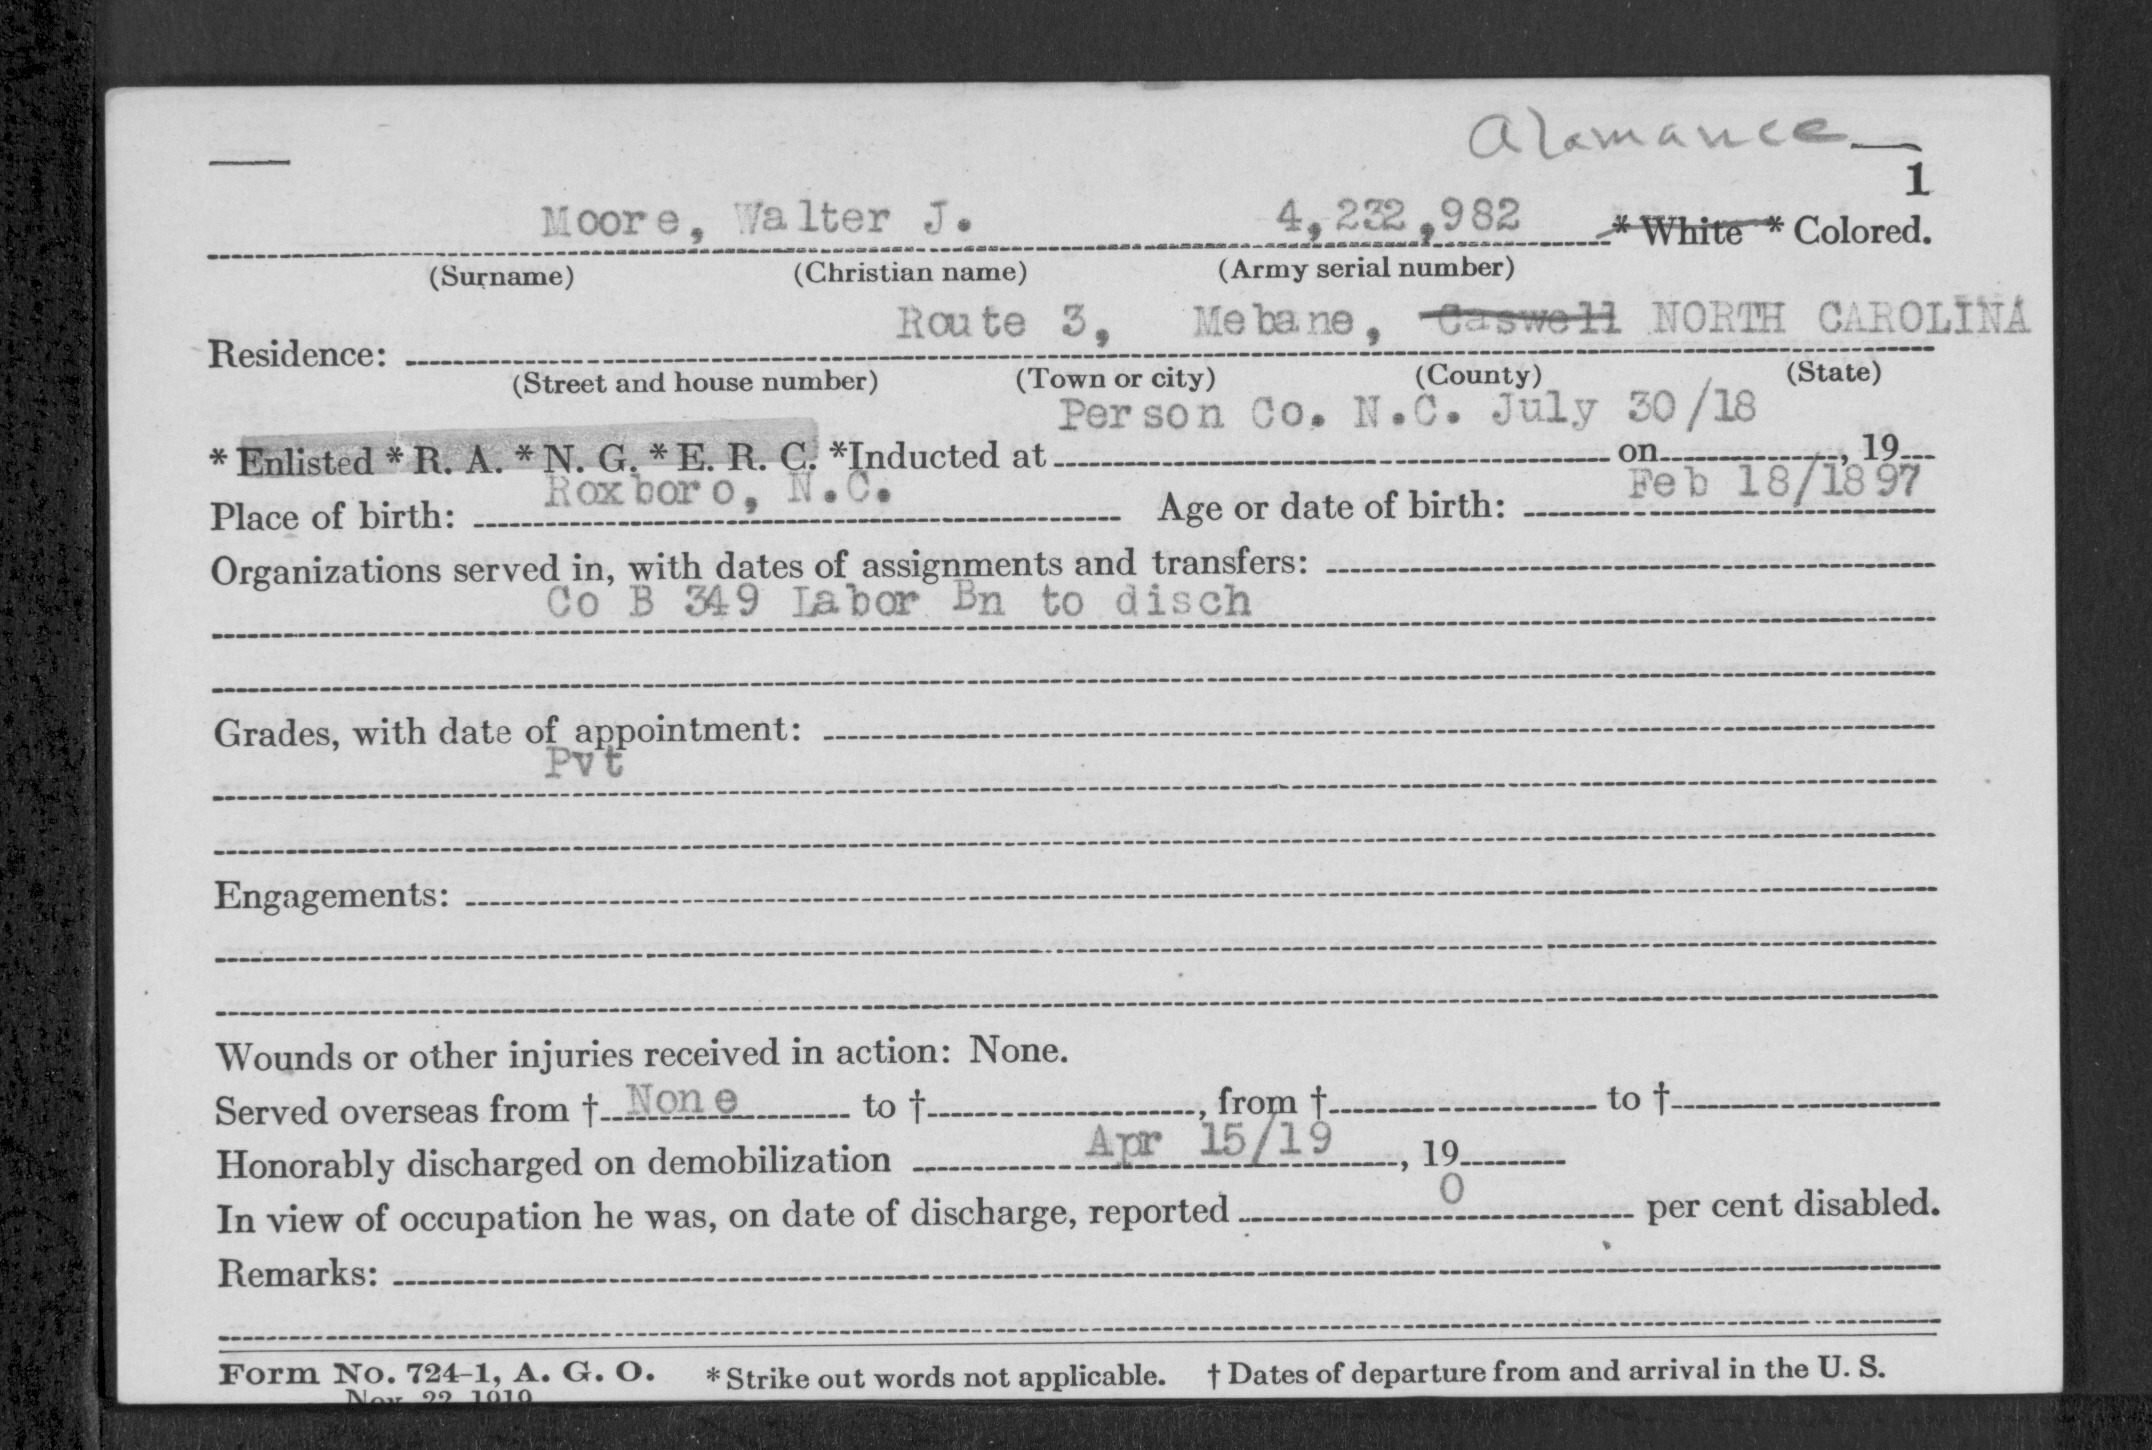 Alamance
1
Moore, Walter J. 4,232,982 * White * Colored.
(Surname) (Christian name) (Army serial number)
Route 3, Mebane, Caswell NORTH CAROLINA
Residence:
(Street and house number) (Town or city) (County) (State)
Person Co. N.C. July 30/18
* Enlisted * R. A. * N. G. * E. R. C. *Inducted at on , 19
Roxboro, N.C. Feb 18/1897
Place of birth: Age or date of birth:
Organizations served in, with dates of assignments and transfers:
Co B 349 Labor Bn to disch
Grades, with date of appointment:
Pvt
Engagements:
Wounds or other injuries received in action: None.
Served overseas from † None to † , from † to †
Honorably discharged on demobilization Apr 15/19 , 19
In view of occupation he was, on date of discharge, reported 0 per cent disabled.
Remarks:
Form No. 724-1, A. G. O. * Strike out words not applicable. † Dates of departure from and arrival in the U. S.
Nov. 22, 1919